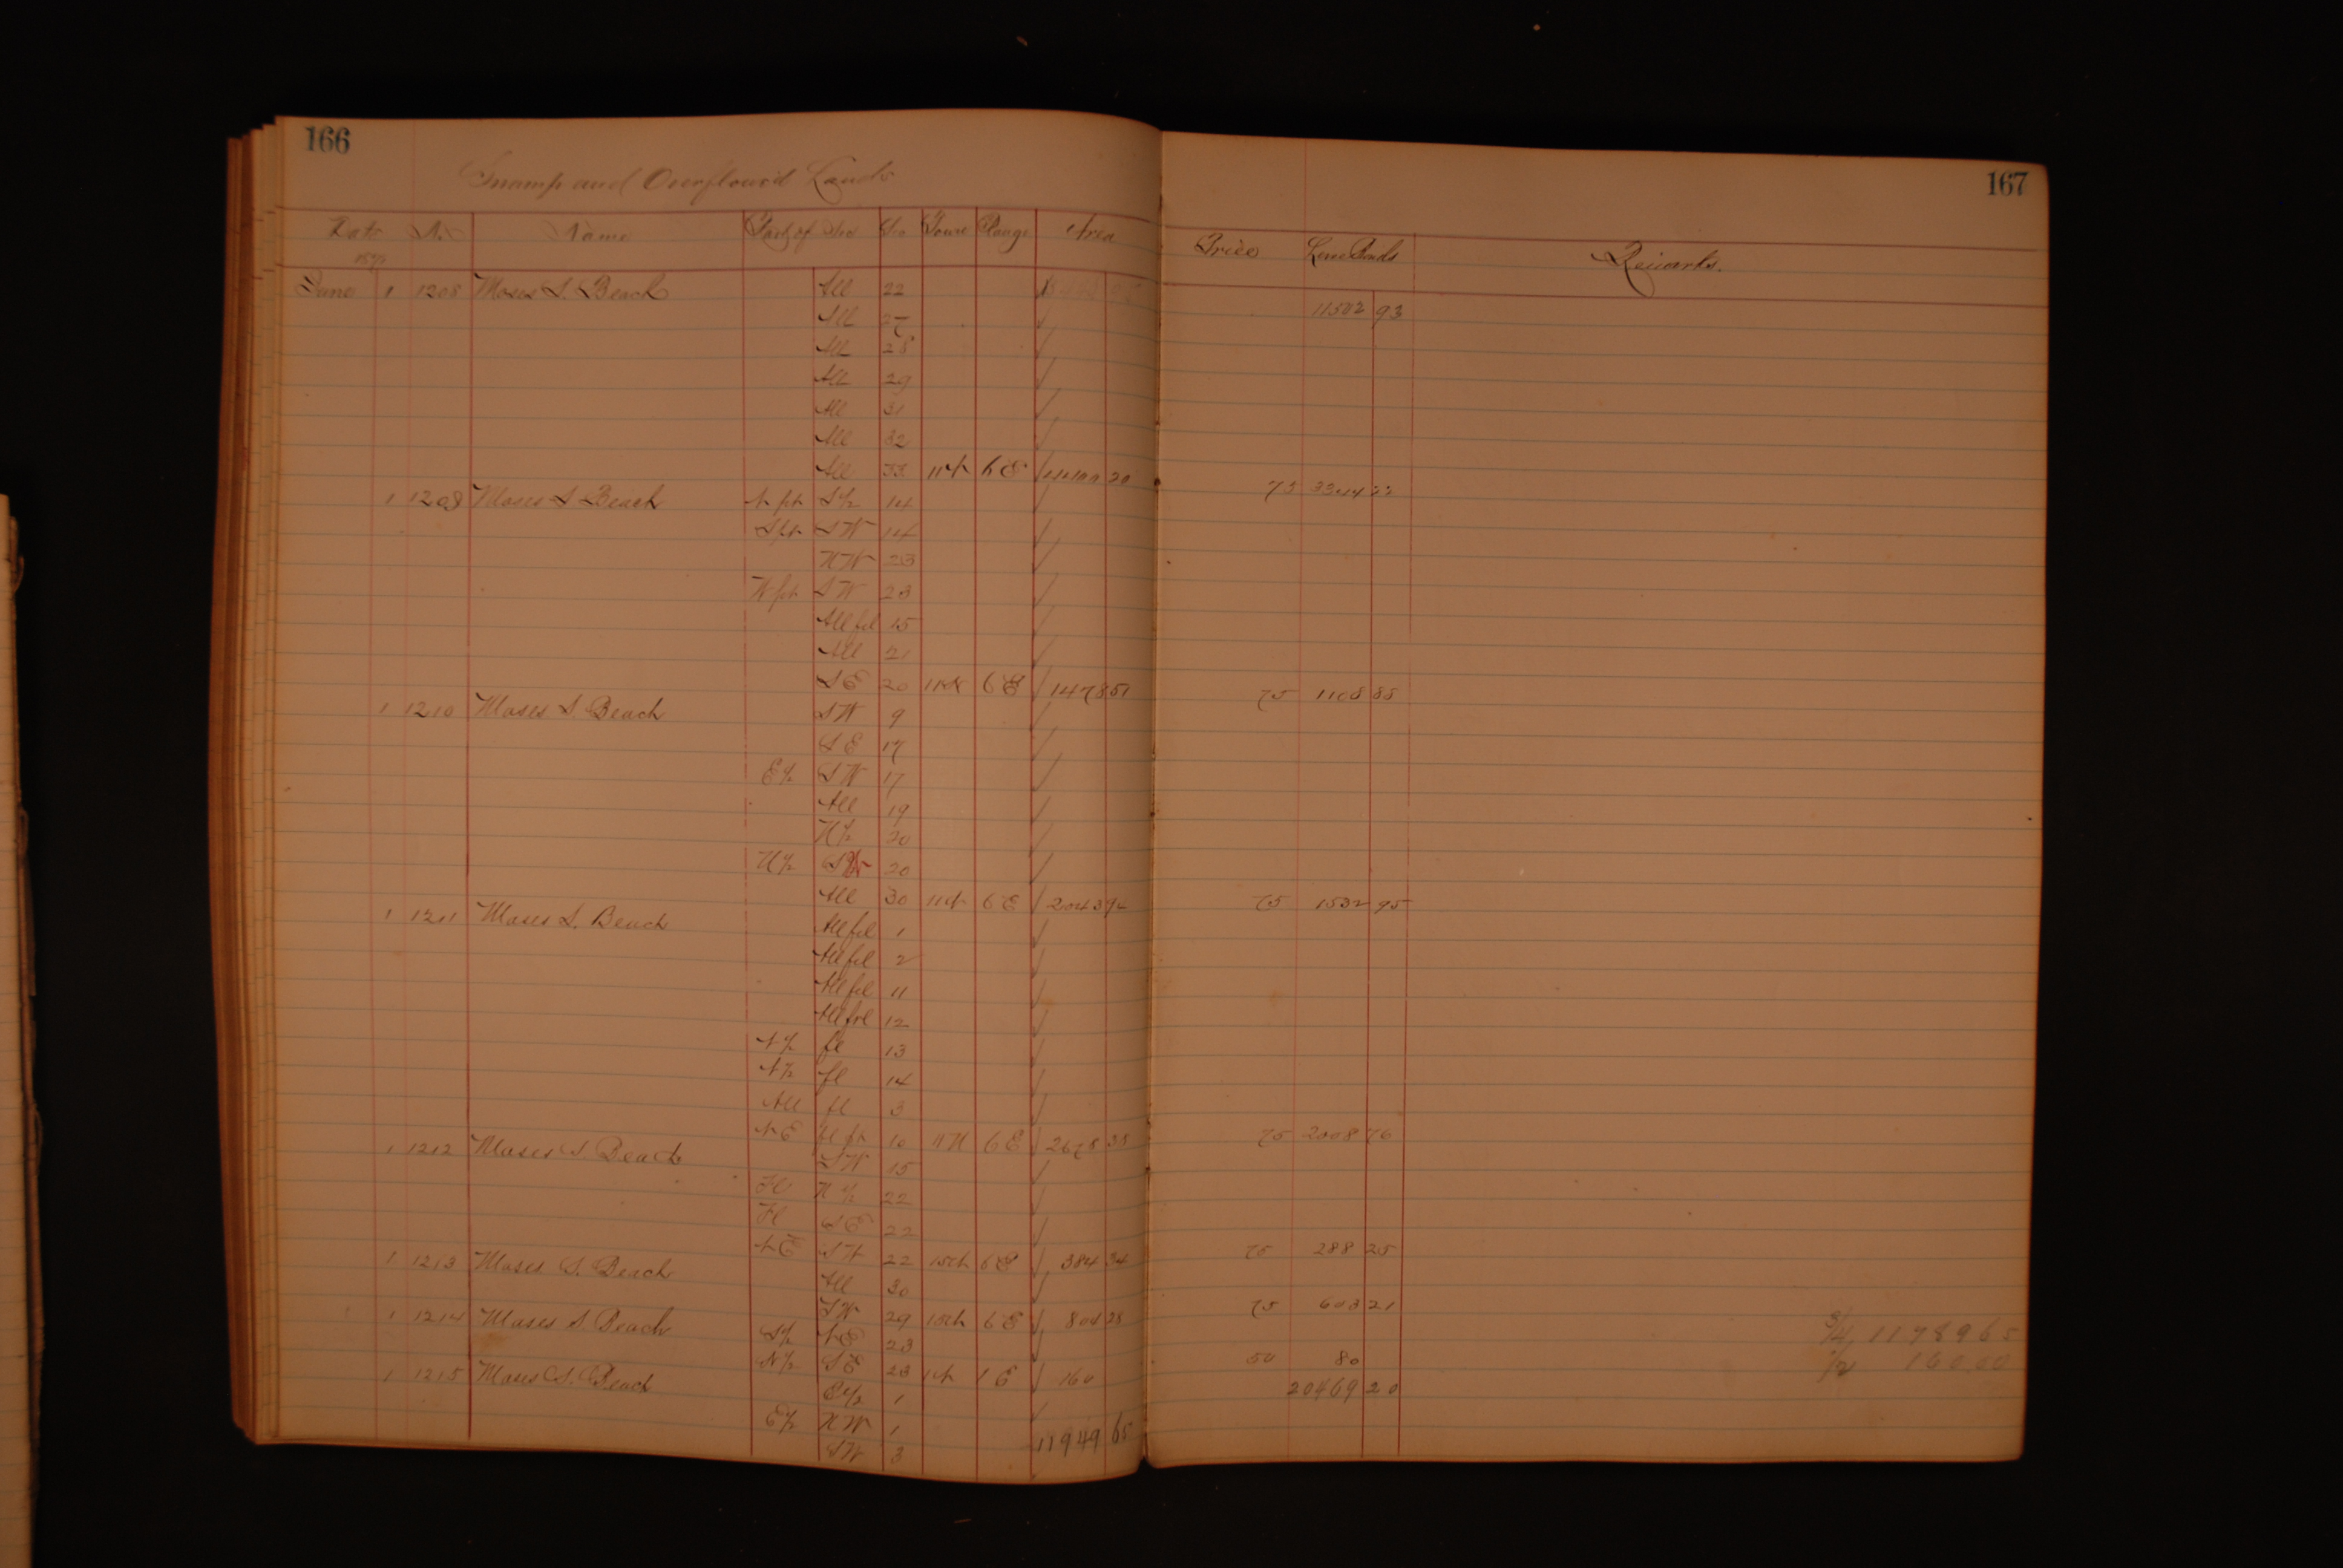 166
Swamp and Overflow'd Lands
Date No. Name Part of Sec Sec Town Range Area
June 1 1208 Moses S. Beach All 22
All 27
All 28
All 29
All 31
All 32
All 33 6 E 20
1 1209 Moses S Beach S½ 14
S pt SW 14
NW 23
W pt SW 23
All fcl 15
All 21
SE 20 6 E 1478 51
1 1210 Moses S. Beach SW 9
SE 17
E½ SW 17
All 19
N½ 20
N½ 20
All 30 6 E 2043 94
1 1211 Moses S. Beach All fcl 1
All fcl 2
All fcl 11
All fcl 12
N½ fl 13
N½ fl 14
All fl 3
NE fl pt 10 11 N 6 E 2678 35
1 1212 Moses S Beach SW 15
Fl N½ 22
Fl SE 22
22 6 E 384 34
1 1213 Moses S. Beach All 30
SW 29 6 E 804 28
1 1214 Moses S Beach S½ NE 23
N½ SE 23 1 E 160
1 1215 Moses S. Beach E½ 1
E½ NW 1
SW 3
11949 65
167
Price Remarks.
11502 93
75 3344
75 1108 88
75 1532 95
75 2008 76
75 288 25
75 603 21
50 80
20469 20
¾ 11789 65
½ 160.00